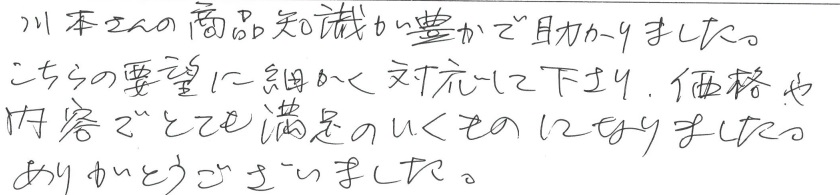 川本さんの商品知識が豊かで助かりました。
こちらの要望に細かく対応して下さり、価格や
内容でとても満足のいくものになりました。
ありがとうございました。